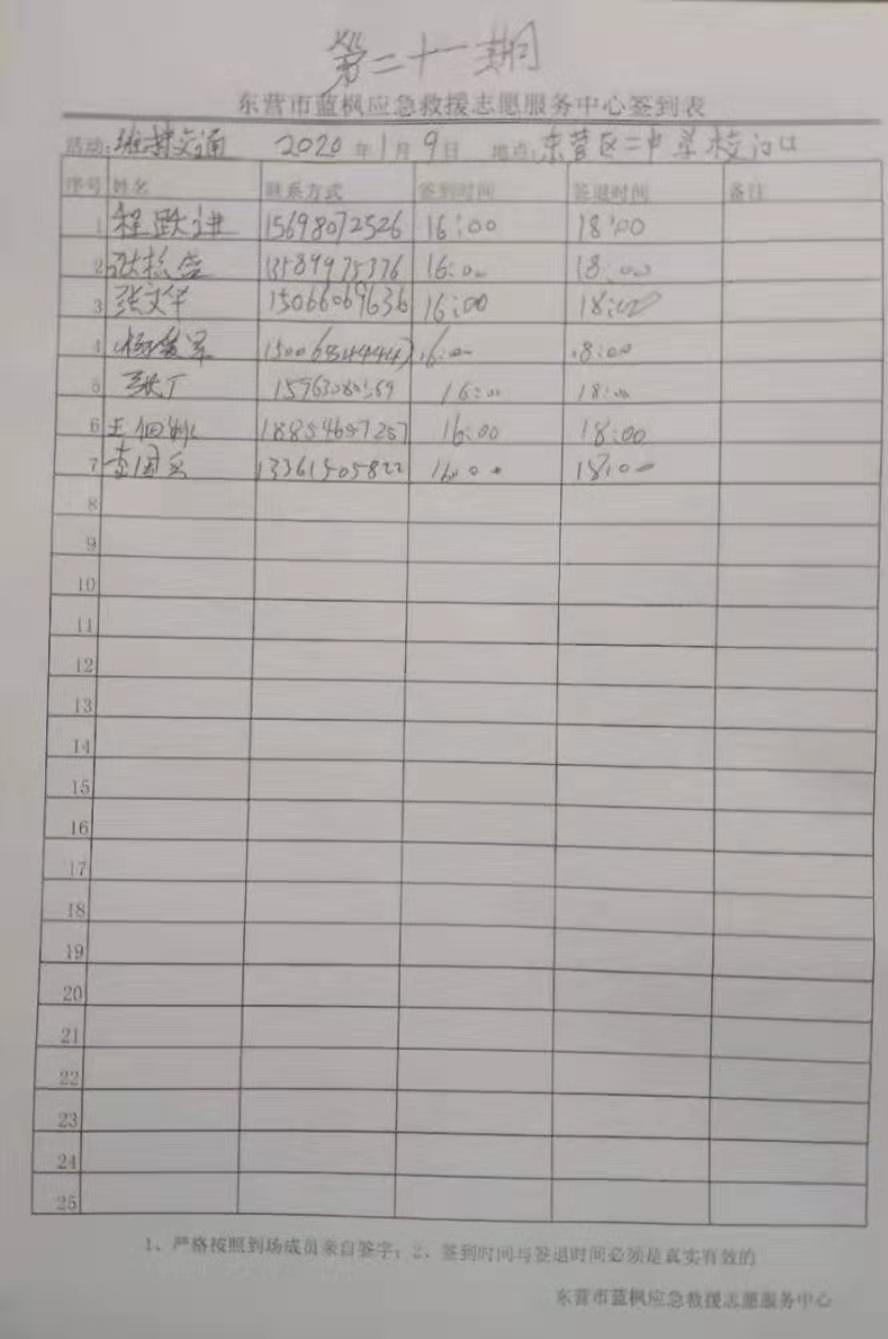 第二十一期
东营市蓝枫应急救援志愿服务中心签到表
活动:维持交通 2020年1月9日 地点:东营区二中学校门口
序号 姓名 联系方式 签到时间 签退时间 备注
1 程跃进 15698072526 16:00 18:00
2 13589975376 16:00 18:00
3 张文华 15066069636 16:00 18:00
4 16:00 18:00
5 张丁 16:00 18:00
6 18854697257 16:00 18:00
7 李国兵 13361505822 16:00 18:00
8
9
10
11
12
13
14
15
16
17
18
19
20
21
22
23
24
25
1、严格按照到场成员亲自签字；2、签到时间与签退时间必须是真实有效的
东营市蓝枫应急救援志愿服务中心